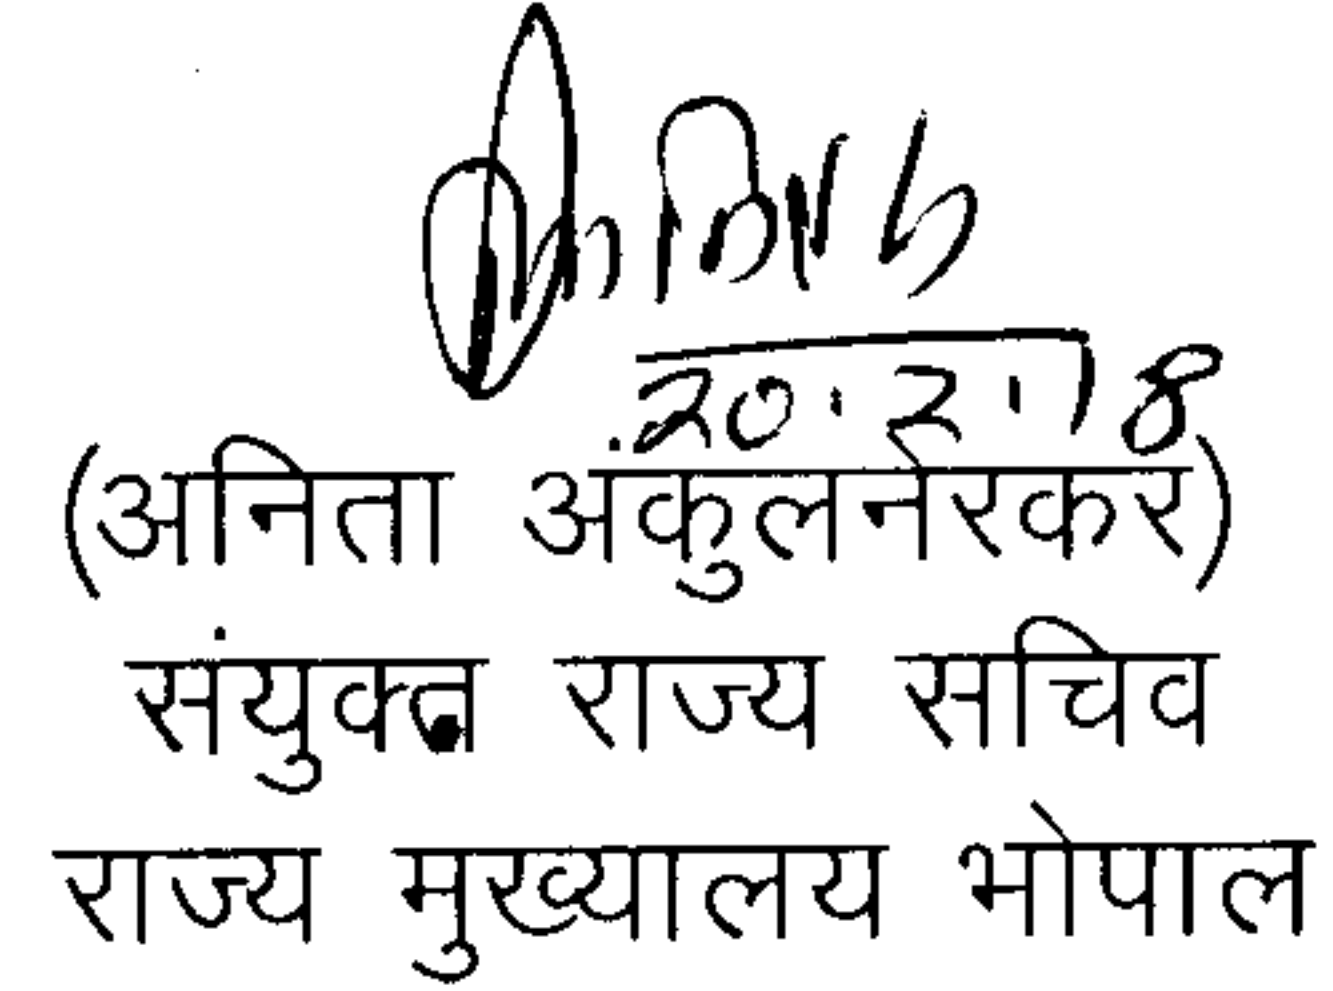 20.2.18
(अनिता अंकुलनेरकर)
संयुक्त राज्य सचिव
राज्य मुख्यालय भोपाल